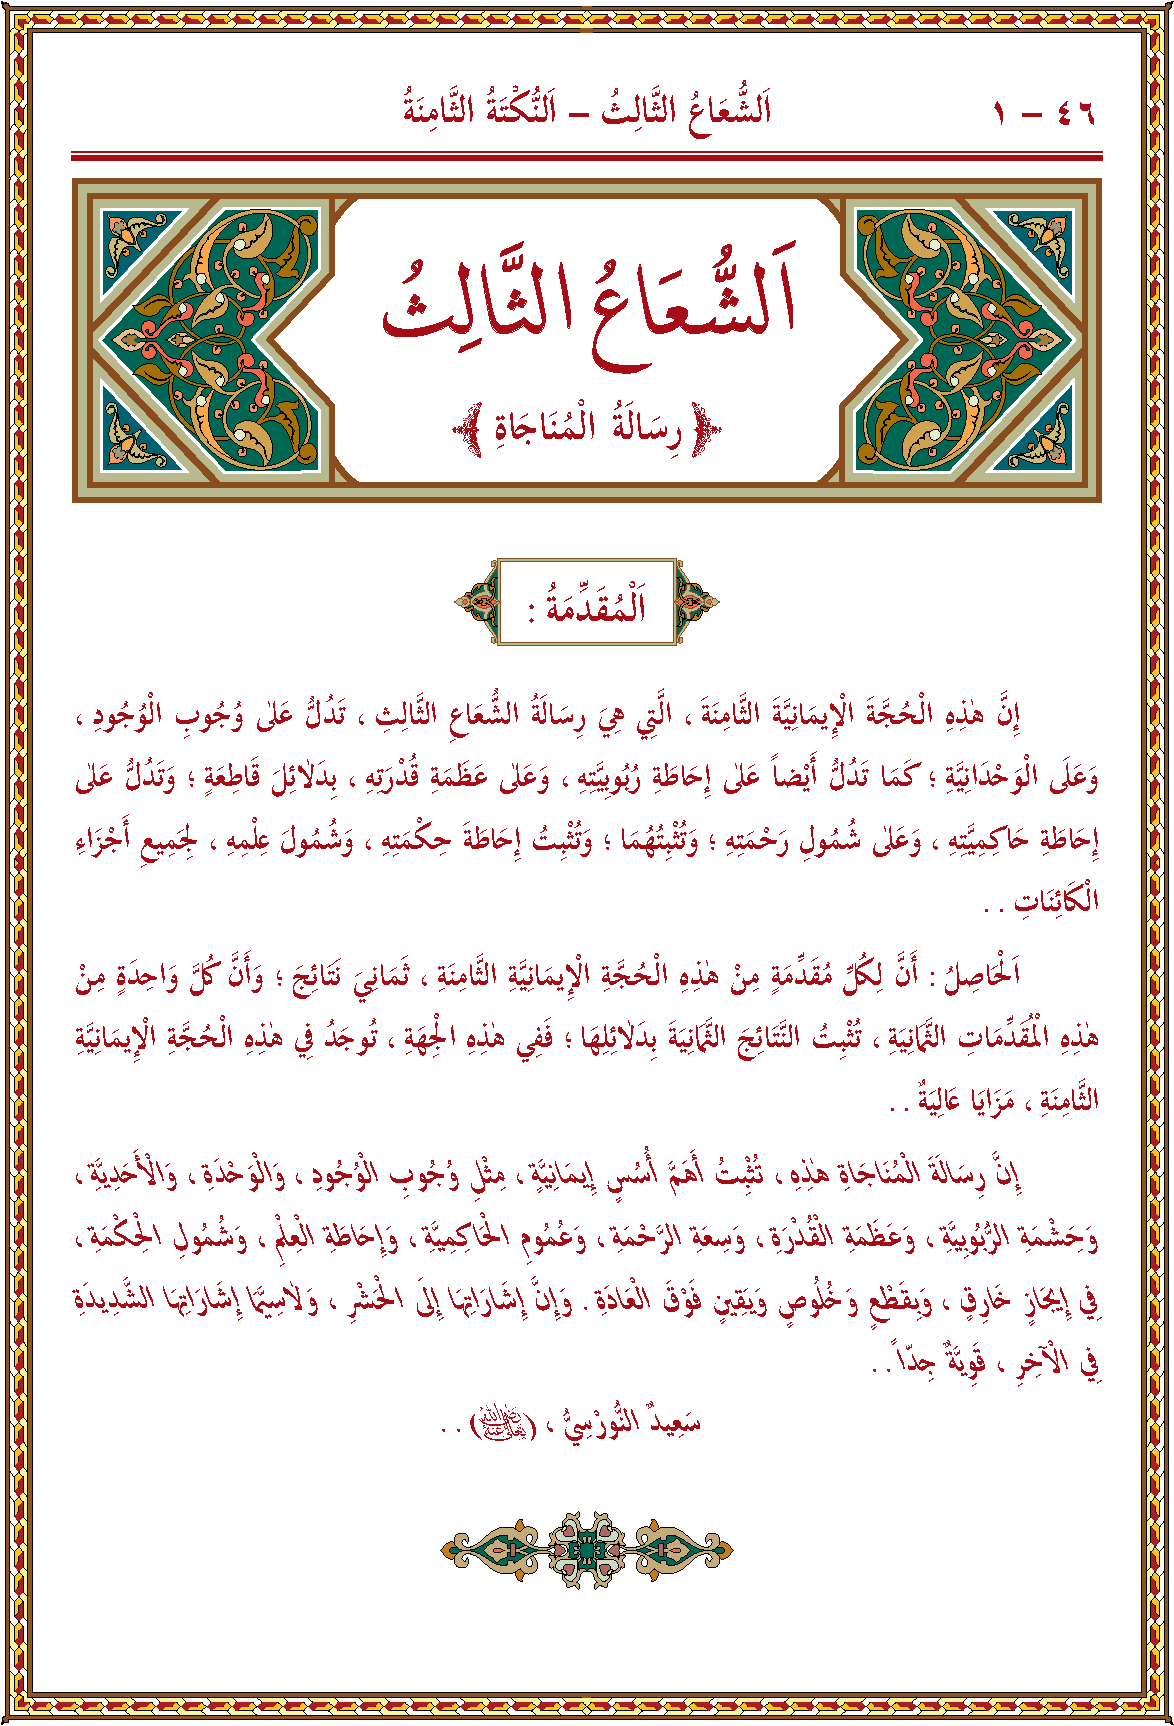 ٤٦ – ١
اَلشُّعَاعُ الثَّالِثُ – اَلنُّكْتَةُ الثَّامِنَةُ
اَلشُّعَاعُ الثَّالِثُ
﴿ رِسَالَةُ الْمُنَاجَاةِ ﴾
اَلْمُقَدِّمَةُ :
إِنَّ هٰذِهِ الْحُجَّةَ الْإِيمَانِيَّةَ الثَّامِنَةَ ، الَّتِي هِيَ رِسَالَةُ الشُّعَاعِ الثَّالِثِ ، تَدُلُّ عَلٰى وُجُوبِ الْوُجُودِ ،
وَعَلَى الْوَحْدَانِيَّةِ ؛ كَمَا تَدُلُّ أَيْضاً عَلٰى إِحَاطَةِ رُبُوبِيَّتِهِ ، وَعَلٰى عَظَمَةِ قُدْرَتِهِ ، بِدَلَائِلَ قَاطِعَةٍ ؛ وَتَدُلُّ عَلٰى
إِحَاطَةِ حَاكِمِيَّتِهِ ، وَعَلٰى شُمُولِ رَحْمَتِهِ ؛ وَتُثْبِتُهُمَا ؛ وَتُثْبِتُ إِحَاطَةَ حِكْمَتِهِ ، وَشُمُولَ عِلْمِهِ ، لِجَمِيعِ أَجْزَاءِ
الْكَائِنَاتِ . .
اَلْحَاصِلُ : أَنَّ لِكُلِّ مُقَدِّمَةٍ مِنْ هٰذِهِ الْحُجَّةِ الْإِيمَانِيَّةِ الثَّامِنَةِ ، ثَمَانِيَ نَتَائِجَ ؛ وَأَنَّ كُلَّ وَاحِدَةٍ مِنْ
هٰذِهِ الْمُقَدِّمَاتِ الثَّمَانِيَةِ ، تُثْبِتُ النَّتَائِجَ الثَّمَانِيَةَ بِدَلَائِلِهَا ؛ فَفِي هٰذِهِ الْجِهَةِ ، تُوجَدُ فِي هٰذِهِ الْحُجَّةِ الْإِيمَانِيَّةِ
الثَّامِنَةِ ، مَزَايَا عَالِيَةٌ . .
إِنَّ رِسَالَةَ الْمُنَاجَاةِ هٰذِهِ ، تُثْبِتُ أَهَمَّ أُسُسٍ إِيمَانِيَّةٍ ، مِثْلِ وُجُوبِ الْوُجُودِ ، وَالْوَحْدَةِ ، وَالْأَحَدِيَّةِ ،
وَحَشْمَةِ الرُّبُوبِيَّةِ ، وَعَظَمَةِ الْقُدْرَةِ ، وَسِعَةِ الرَّحْمَةِ ، وَعُمُومِ الْحَاكِمِيَّةِ ، وَإِحَاطَةِ الْعِلْمِ ، وَشُمُولِ الْحِكْمَةِ ،
فِي إِيجَازٍ خَارِقٍ ، وَبِقَطْعٍ وَخُلُوصٍ وَيَقِينٍ فَوْقَ الْعَادَةِ . وَإِنَّ إِشَارَاتِهَا إِلَى الْحَشْرِ ، وَلَاسِيَّمَا إِشَارَاتِهَا الشَّدِيدَةِ
فِي الْآخِرِ ، قَوِيَّةٌ جِدّاً . .
سَعِيدٌ النُّورْسِيُّ ، (رَضِيَ اللهُ تَعَالٰى عَنْهُ) . .